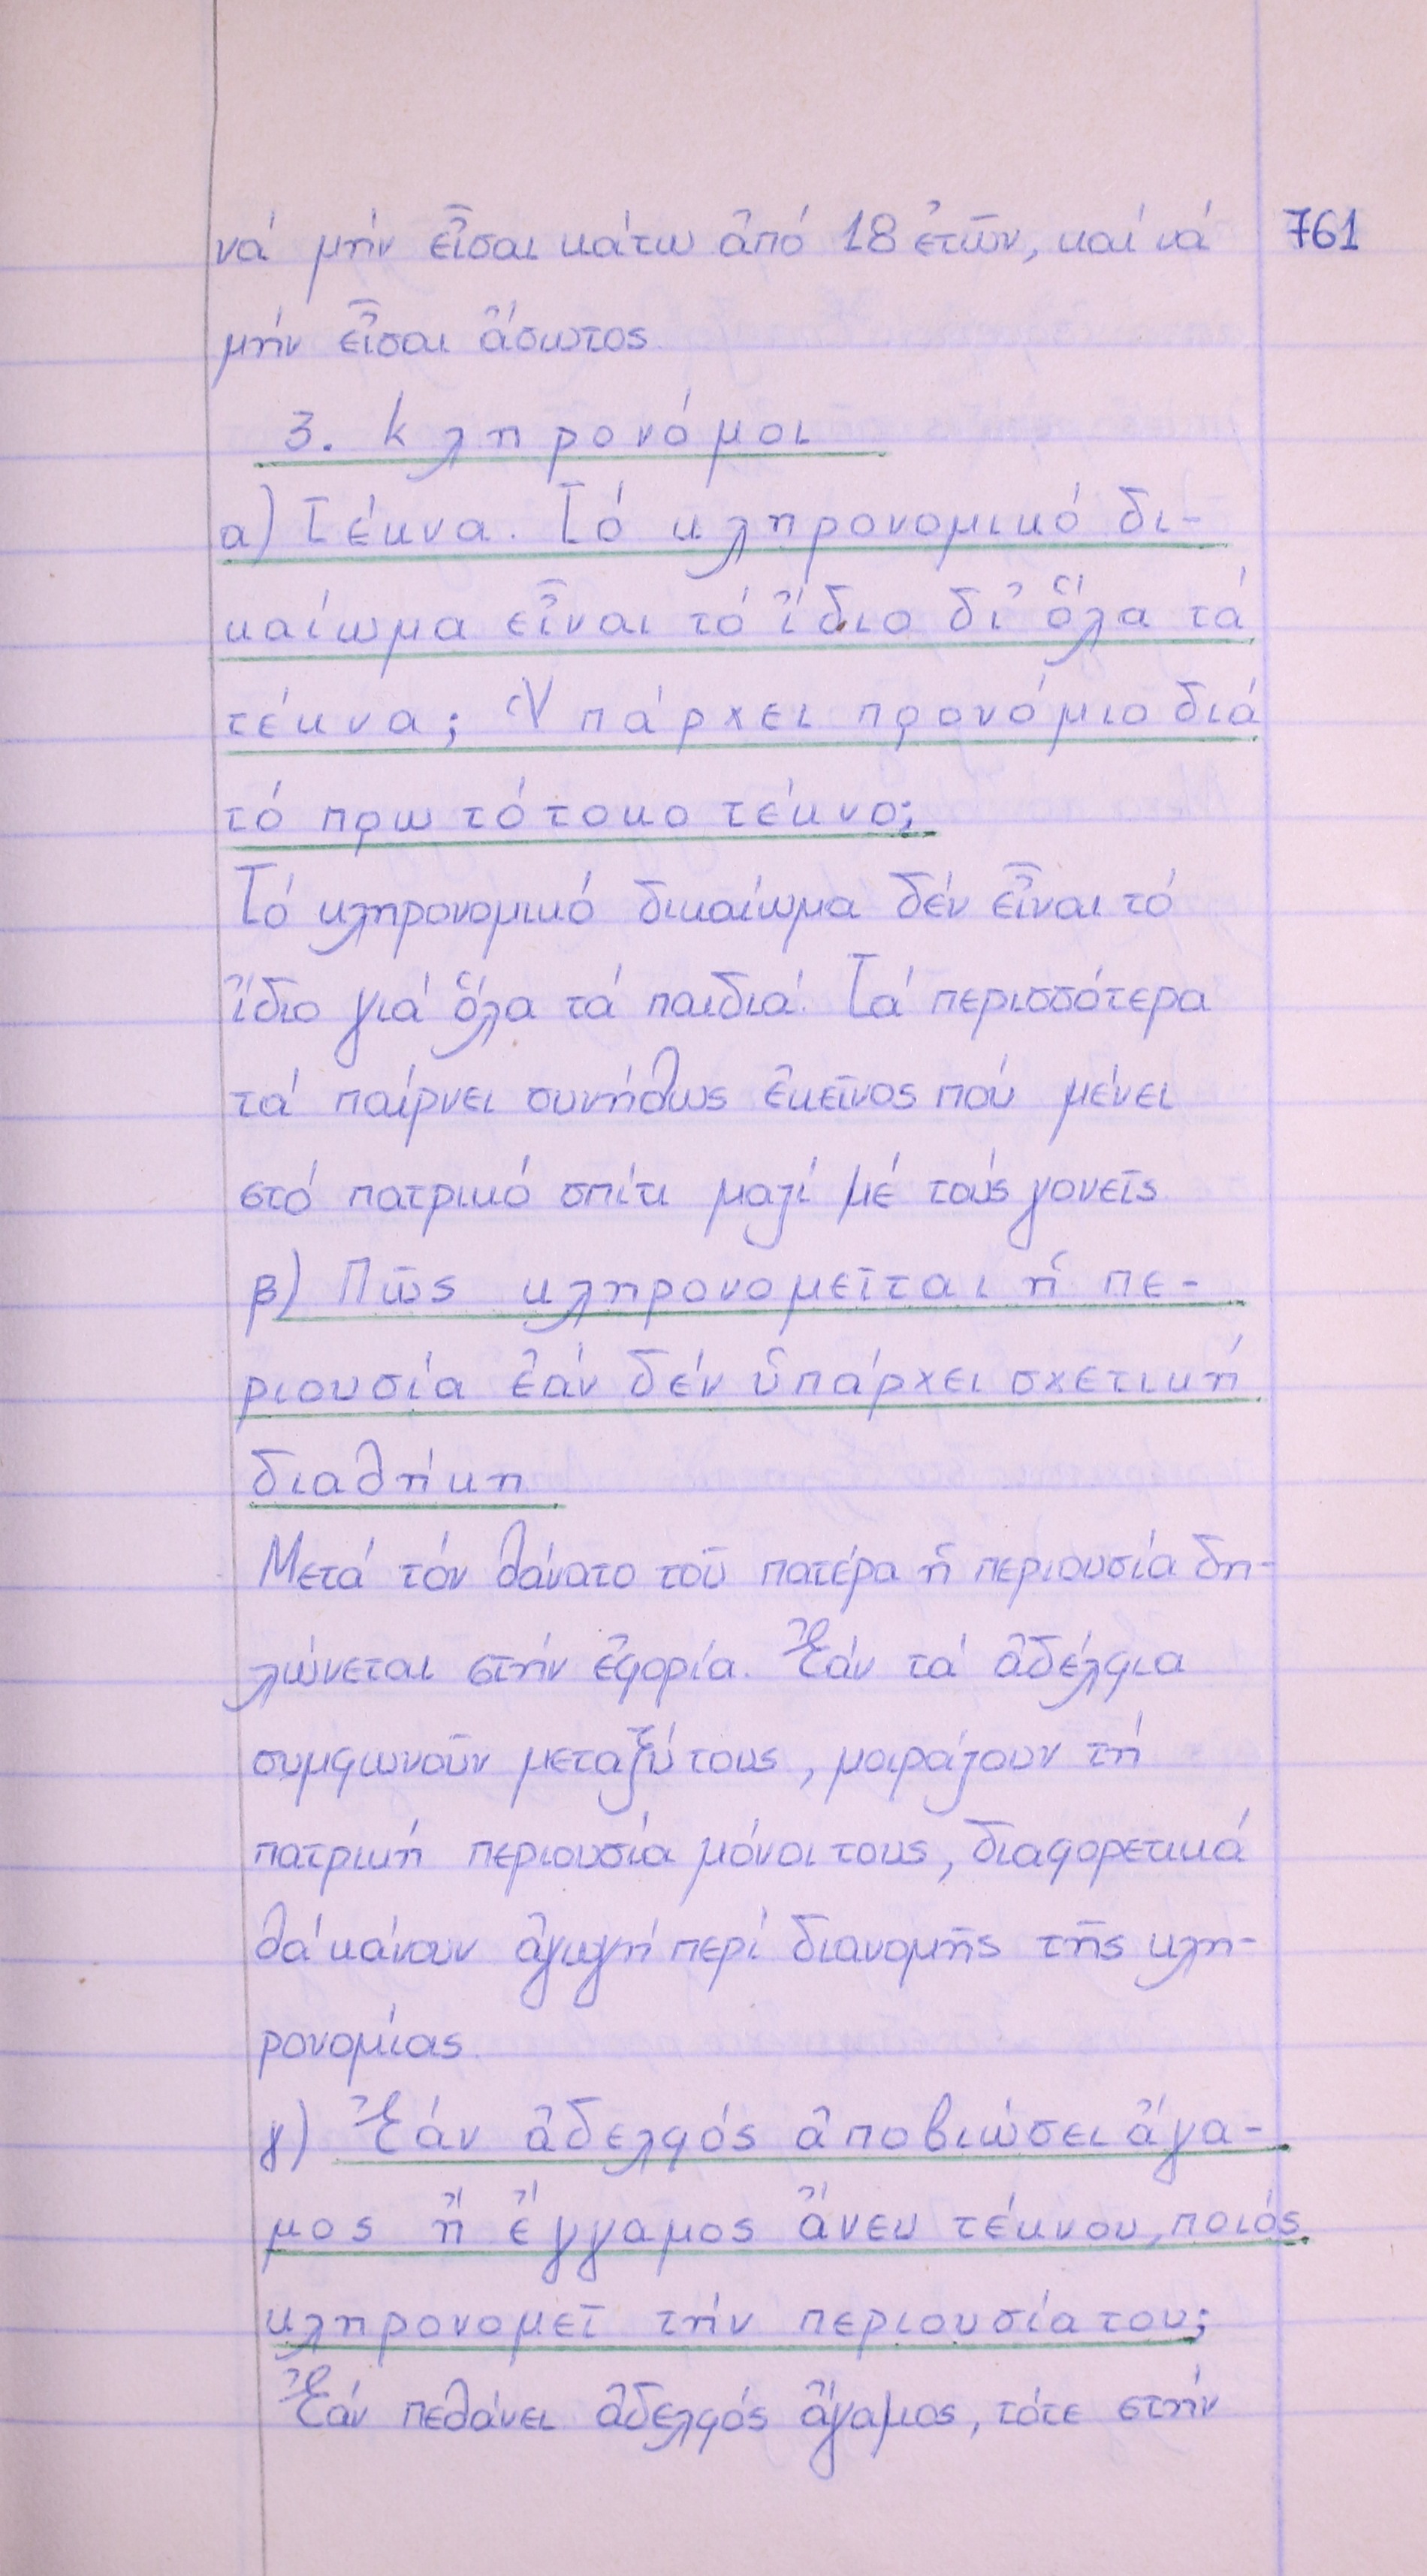 νά μήν εἶσαι κάτω ἀπό 18 ἐτῶν, καί νά 761
μήν εἶσαι ἄσωτος.
3. Κληρονόμοι
α) Τέκνα. Τό κληρονομικό δι-
καίωμα εἶναι τό ἴδιο δι᾿ ὅλα τά
τέκνα; Ὑπάρχει προνόμιο διά
τό πρωτότοκο τέκνο;
Τό κληρονομικό δικαίωμα δέν εἶναι τό
ἴδιο γιά ὅλα τά παιδιά. Τά περισσότερα
τά παίρνει συνήθως ἐκεῖνος πού μένει
στό πατρικό σπίτι μαζί μέ τούς γονεῖς
β) Πῶς κληρονομεῖται ἡ πε-
ριουσία ἐάν δέν ὑπάρχει σχετική
διαθήκη
Μετά τόν θάνατο τοῦ πατέρα ἡ περιουσία δη-
λώνεται στήν ἐφορία. Ἐάν τά ἀδέλφια
συμφωνοῦν μεταξύ τους, μοιράζουν τή
πατρική περιουσία μόνοι τους, διαφορετικά
θά κάνουν ἀγωγή περί διανομῆς τῆς κλη-
ρονομίας.
γ) Ἐάν ἀδελφός ἀποβιώσει ἄγα-
μος ἤ ἔγγαμος ἄνευ τέκνου, ποιός
κληρονομεῖ τήν περιουσία του;
Ἐάν πεθάνει ἀδελφός ἄγαμος, τότε στήν